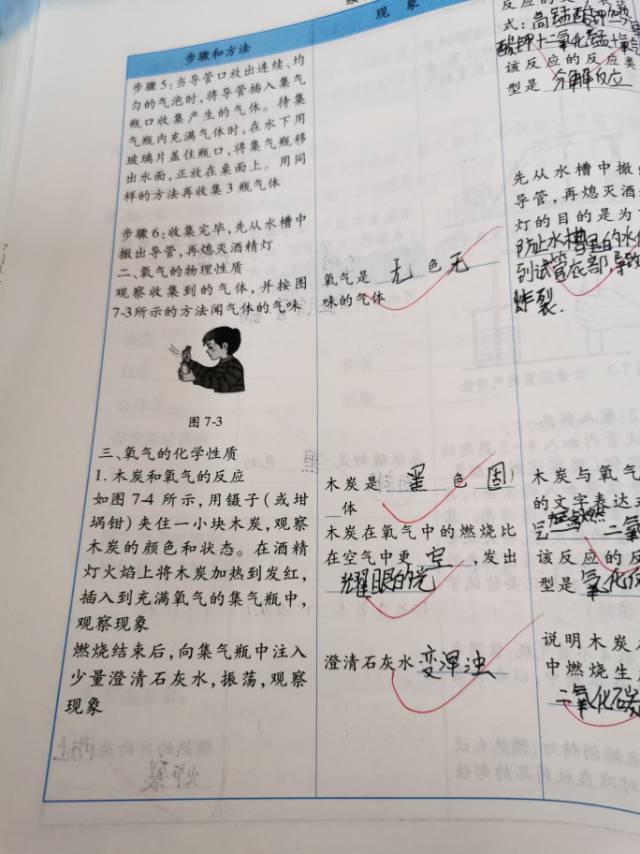 步骤和方法
现象
步骤5:当导管口放出连续、均
匀的气泡时,将导管插入集气
瓶口收集产生的气体。待集
气瓶内充满气体时,在水下用
玻璃片盖住瓶口,将集气瓶移
出水面,正放在桌面上。用同
样的方法再收集3瓶气体
步骤6:收集完毕,先从水槽中
撤出导管,再熄灭酒精灯
二、氧气的物理性质
观察收集到的气体,并按图
7-3所示的方法闻气体的气味
图7-3
三、氧气的化学性质
1.木炭和氧气的反应
如图7-4所示,用镊子(或坩
埚钳)夹住一小块木炭,观察
木炭的颜色和状态。在酒精
灯火焰上将木炭加热到发红,
插入到充满氧气的集气瓶中,
观察现象
燃烧结束后,向集气瓶中注入
少量澄清石灰水,振荡,观察
现象
氧气是 无 色 无
味的气体
木炭是 黑 色 固
体
木炭在氧气中的燃烧比
在空气中更 ,发出
耀眼的光
澄清石灰水 变浑浊
式:高锰酸钾
酸钾+二氧化锰+氧
该反应的反应类
型是 分解反应
先从水槽中撤
导管,再熄灭酒
灯的目的是为
防止水槽里的水
到试管底部,导致
炸裂.
木炭与氧气
的文字表达
二氧
该反应的反
型是 氧化反
说明木炭
中燃烧生
二氧化碳